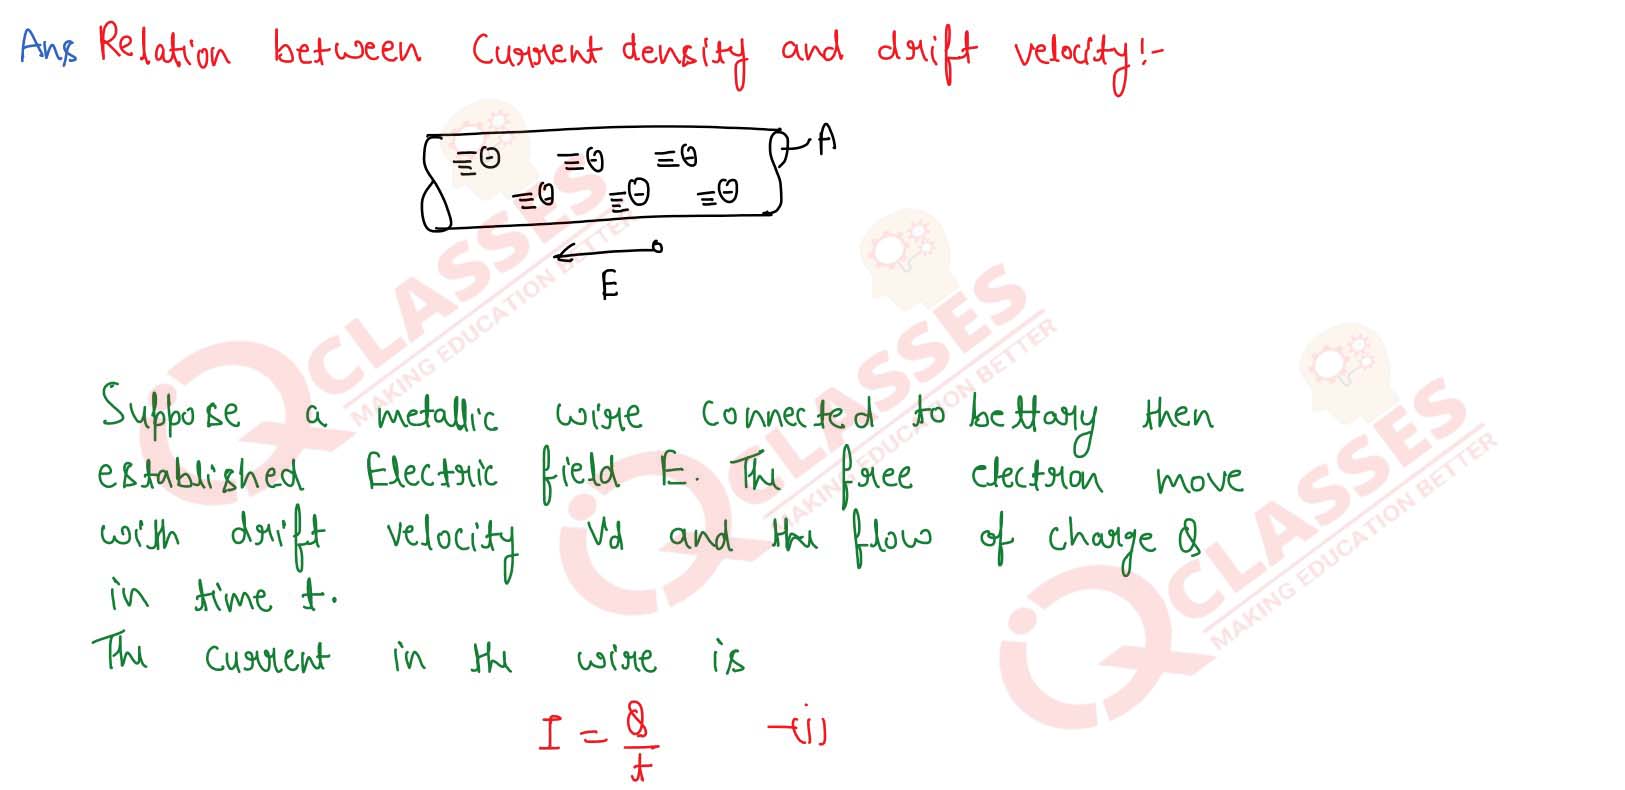 Ans Relation between Current density and drift velocity:-
A
E
Suppose a metallic wire connected to bettary then
established Electric field E. The free electron move
with drift velocity Vd and the flow of charge Q
in time t.
The current in the wire is
I = Q/t -(i)
iQ CLASSES
MAKING EDUCATION BETTER
iQ CLASSES
MAKING EDUCATION BETTER
iQ CLASSES
MAKING EDUCATION BETTER